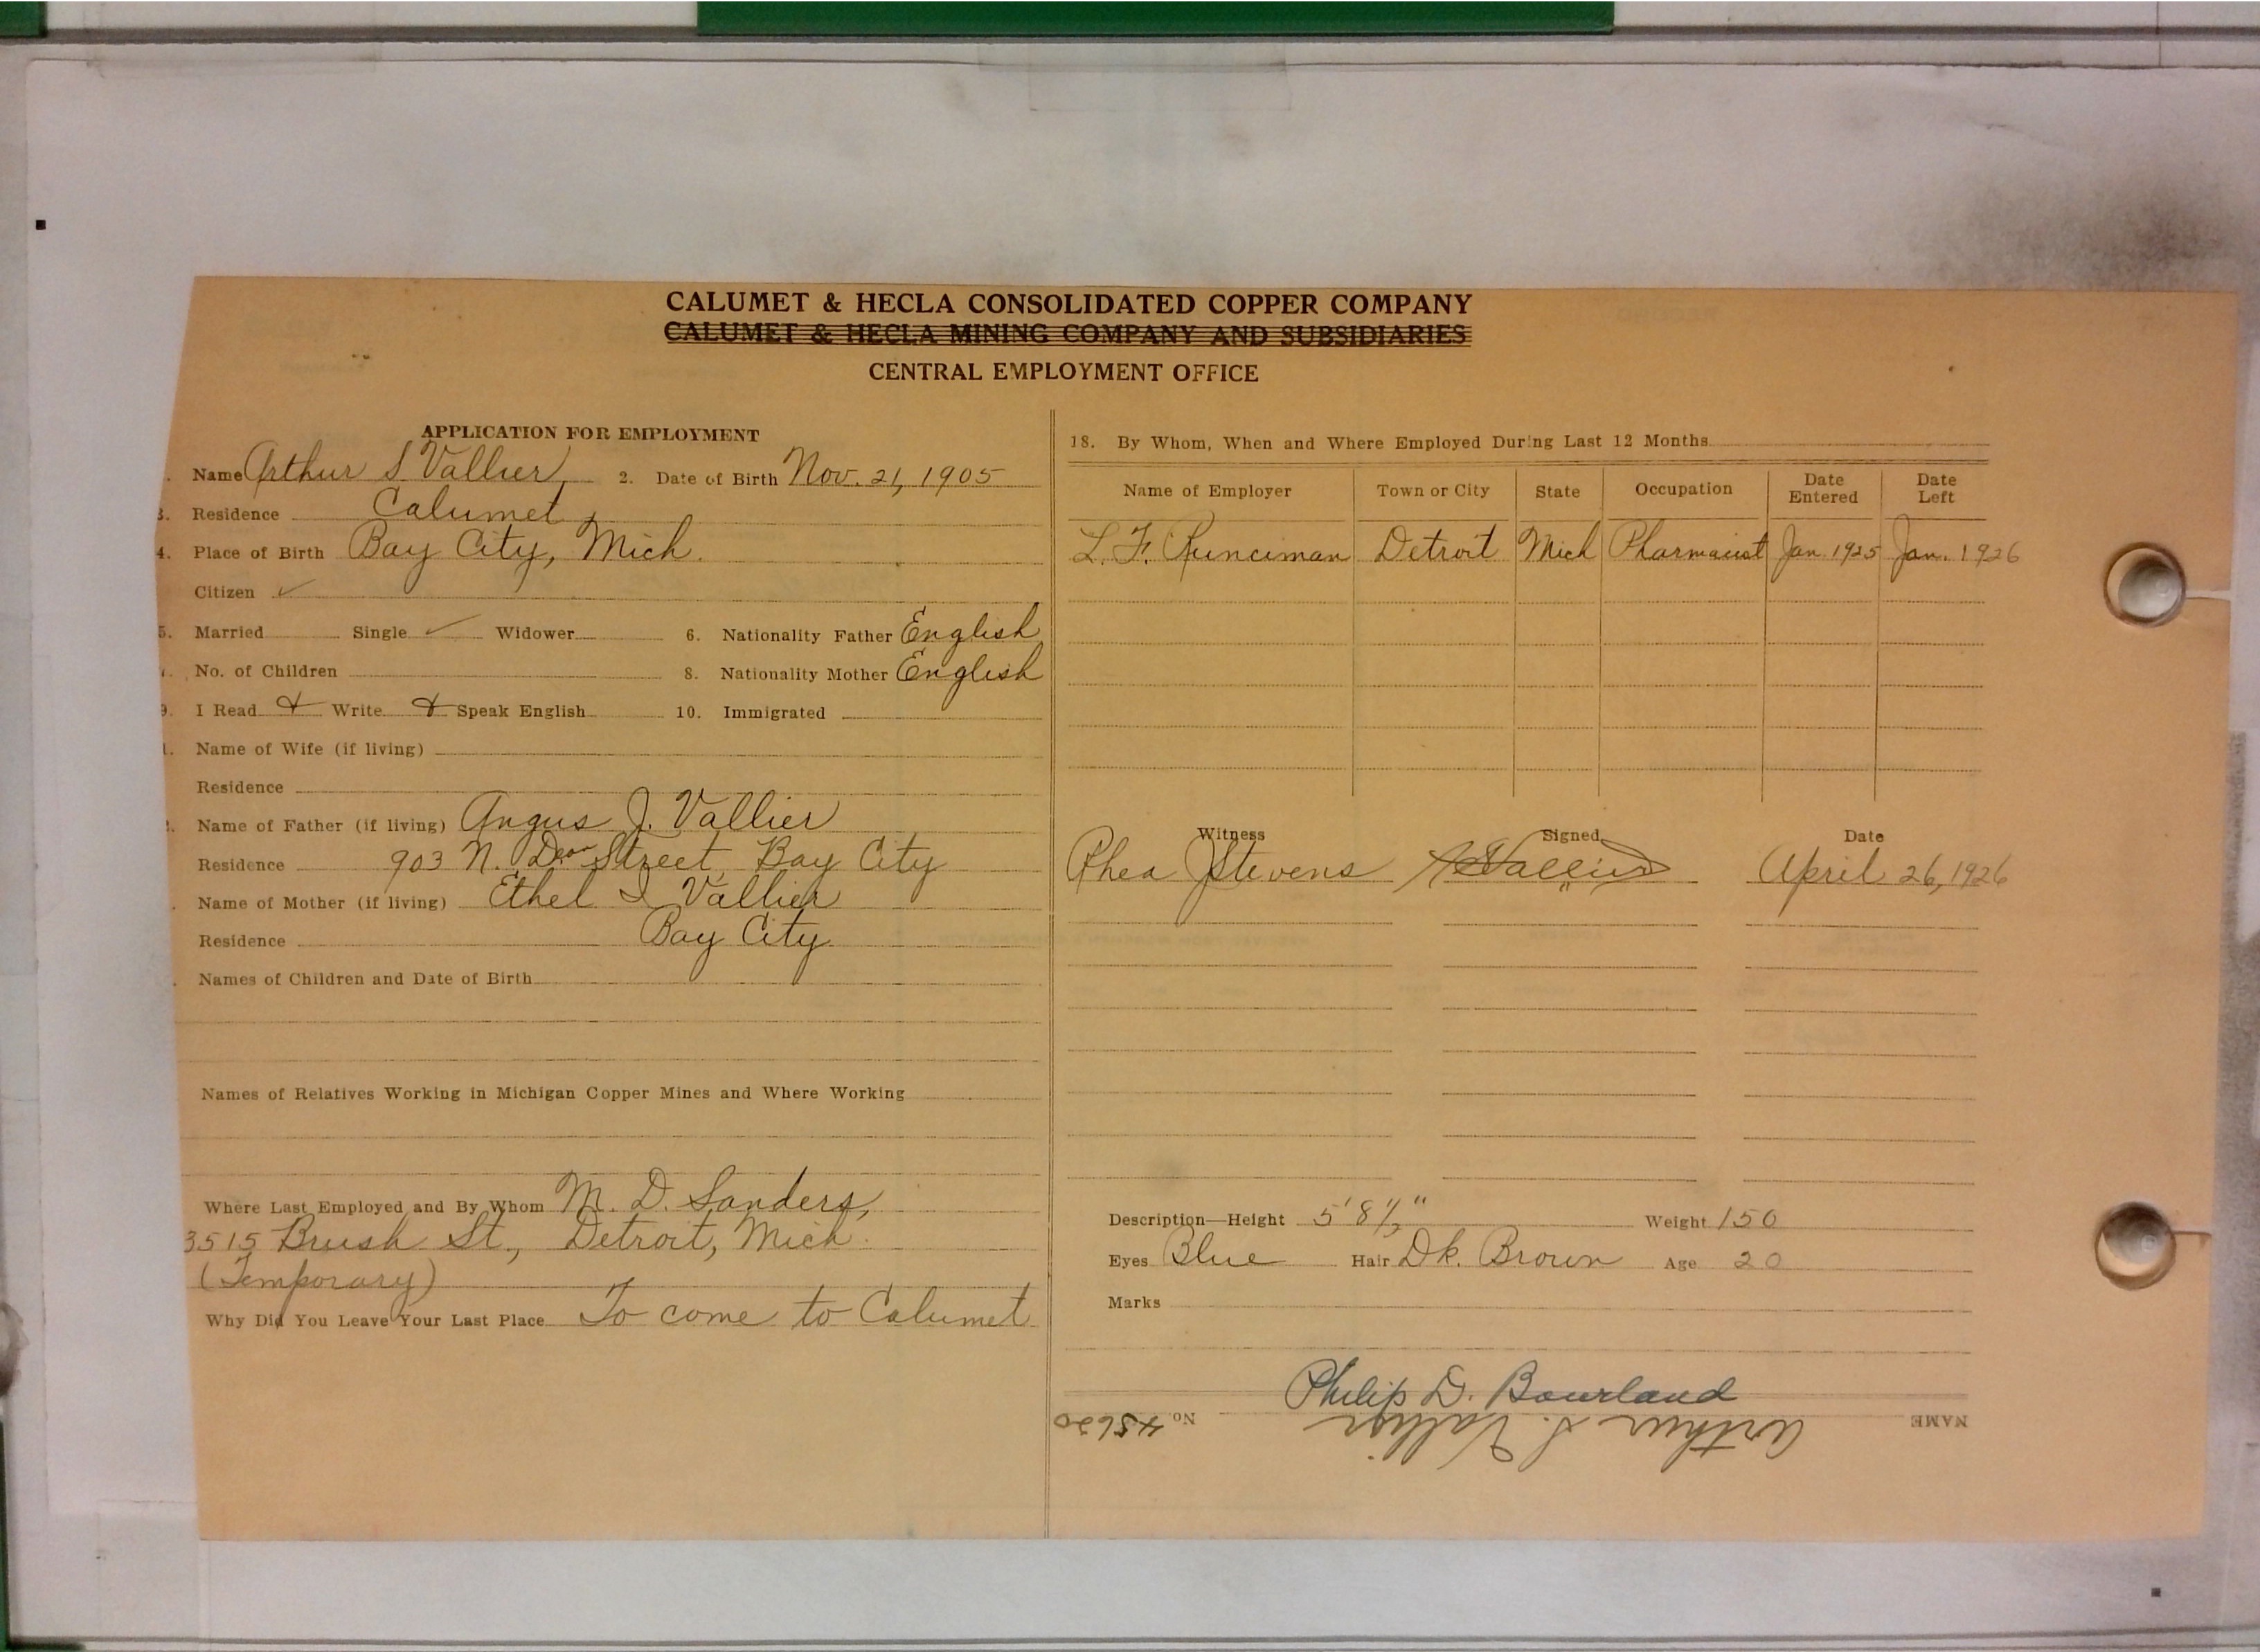 CALUMET & HECLA CONSOLIDATED COPPER COMPANY
CALUMET & HECLA MINING COMPANY AND SUBSIDIARIES
CENTRAL EMPLOYMENT OFFICE
APPLICATION FOR EMPLOYMENT
Name Arthur S. Vallier 2. Date of Birth Nov. 21, 1905
3. Residence Calumet
4. Place of Birth Bay City, Mich.
Citizen ✓
5. Married Single ✓ Widower 6. Nationality Father English
No. of Children 8. Nationality Mother English
9. I Read & Write & Speak English 10. Immigrated
1. Name of Wife (if living)
Residence
Name of Father (if living) Angus J. Vallier
Residence 903 N. Dean Street, Bay City
Name of Mother (if living) Ethel I Vallier
Residence Bay City
Names of Children and Date of Birth
Names of Relatives Working in Michigan Copper Mines and Where Working
Where Last Employed and By Whom M. D. Sanders,
3515 Brush St., Detroit, Mich.
(Temporary)
Why Did You Leave Your Last Place To come to Calumet
18. By Whom, When and Where Employed During Last 12 Months
Name of Employer Town or City State Occupation Date Entered Date Left
L. F. Runciman Detroit Mich Pharmacist Jan. 1925 Jan. 1926
Witness Signed Date
Rhea J Stevens Vallier April 26, 1926
Description—Height 5' 8 1/2" Weight 150
Eyes Blue Hair Dk. Brown Age 20
Marks
Philip D. Bourland
NAME Arthur S. Vallier No. 45620